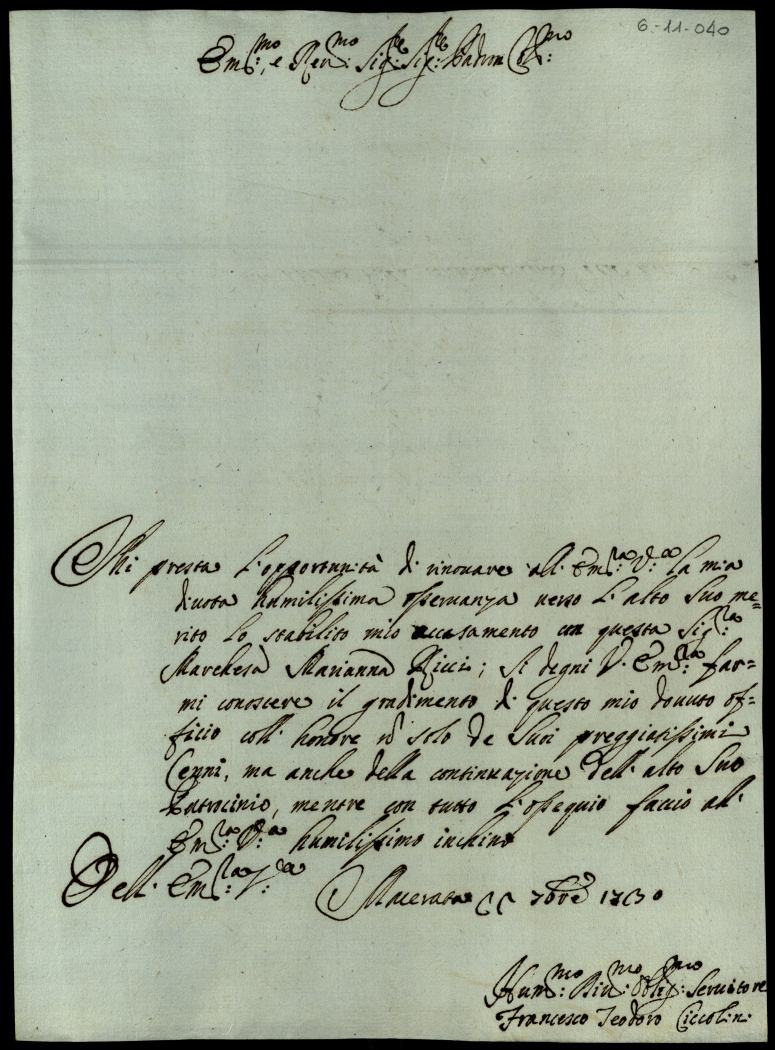 6.-11-040
Em:mo, e Reu:mo Sig:re Sig:re Padron Col:mo
Mi presta l'opportunità di rinouare all' Em:za V:ra la mia
diuota humilissima osseruanza uerso l'alto Suo me=
rito lo stabilito mio accasamento con questa Sig:ra
Marchesa Marianna Ricci; Si degni V. Em:za far=
mi conoscere il gradimento di questo mio douuto of=
ficio coll' honore nõ solo de Suoi preggiatissimi
Cenni, ma anche della continuazione dell' alto Suo
Patrocinio, mentre con tutto l'ossequio faccio all'
Em:za V:ra humilissimo inchino
Dell' Em:za V:ra Macerata 7bre 1730
Hum:mo Diu:mo Oblig:mo Seruitore
Francesco Teodoro Ciccolini